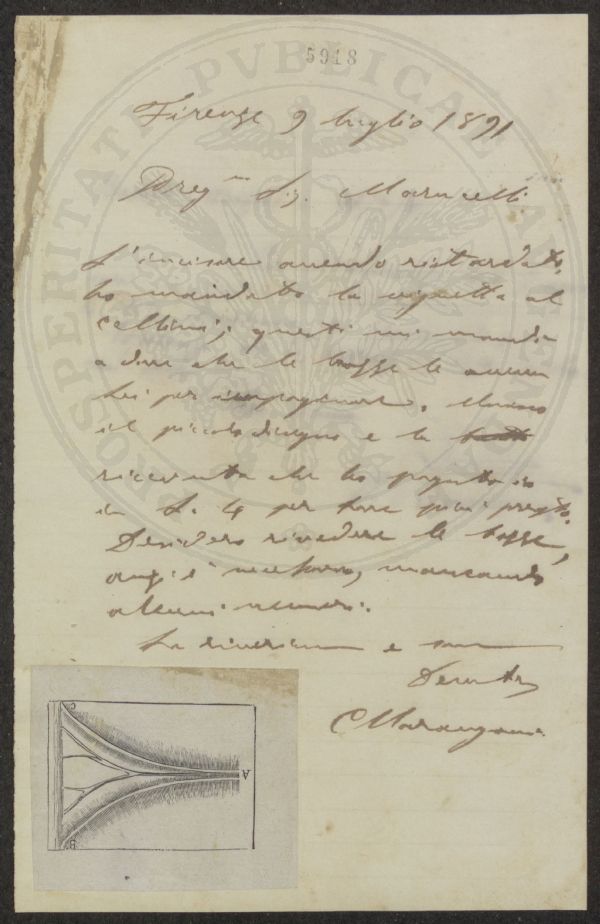 5918
Firenze 9 luglio 1891
Preg.mo Sig. Marucelli
L'incisore avendo ritardato,
ho mandato la vignetta al
Cellini; questi mi manda
a dire che le bozze le aveva
lei per impaginare.
il piccolo disegno e la
ricevuta che ho pagato io
in L. 4 per fare più presto.
Desidero rivedere le bozze,
anzi è necessario, mancando
alcuni numeri.
La riverisco e sono
C Marangoni
C
A
B
PROSPERITATI PVBLICAE AVGENDAE